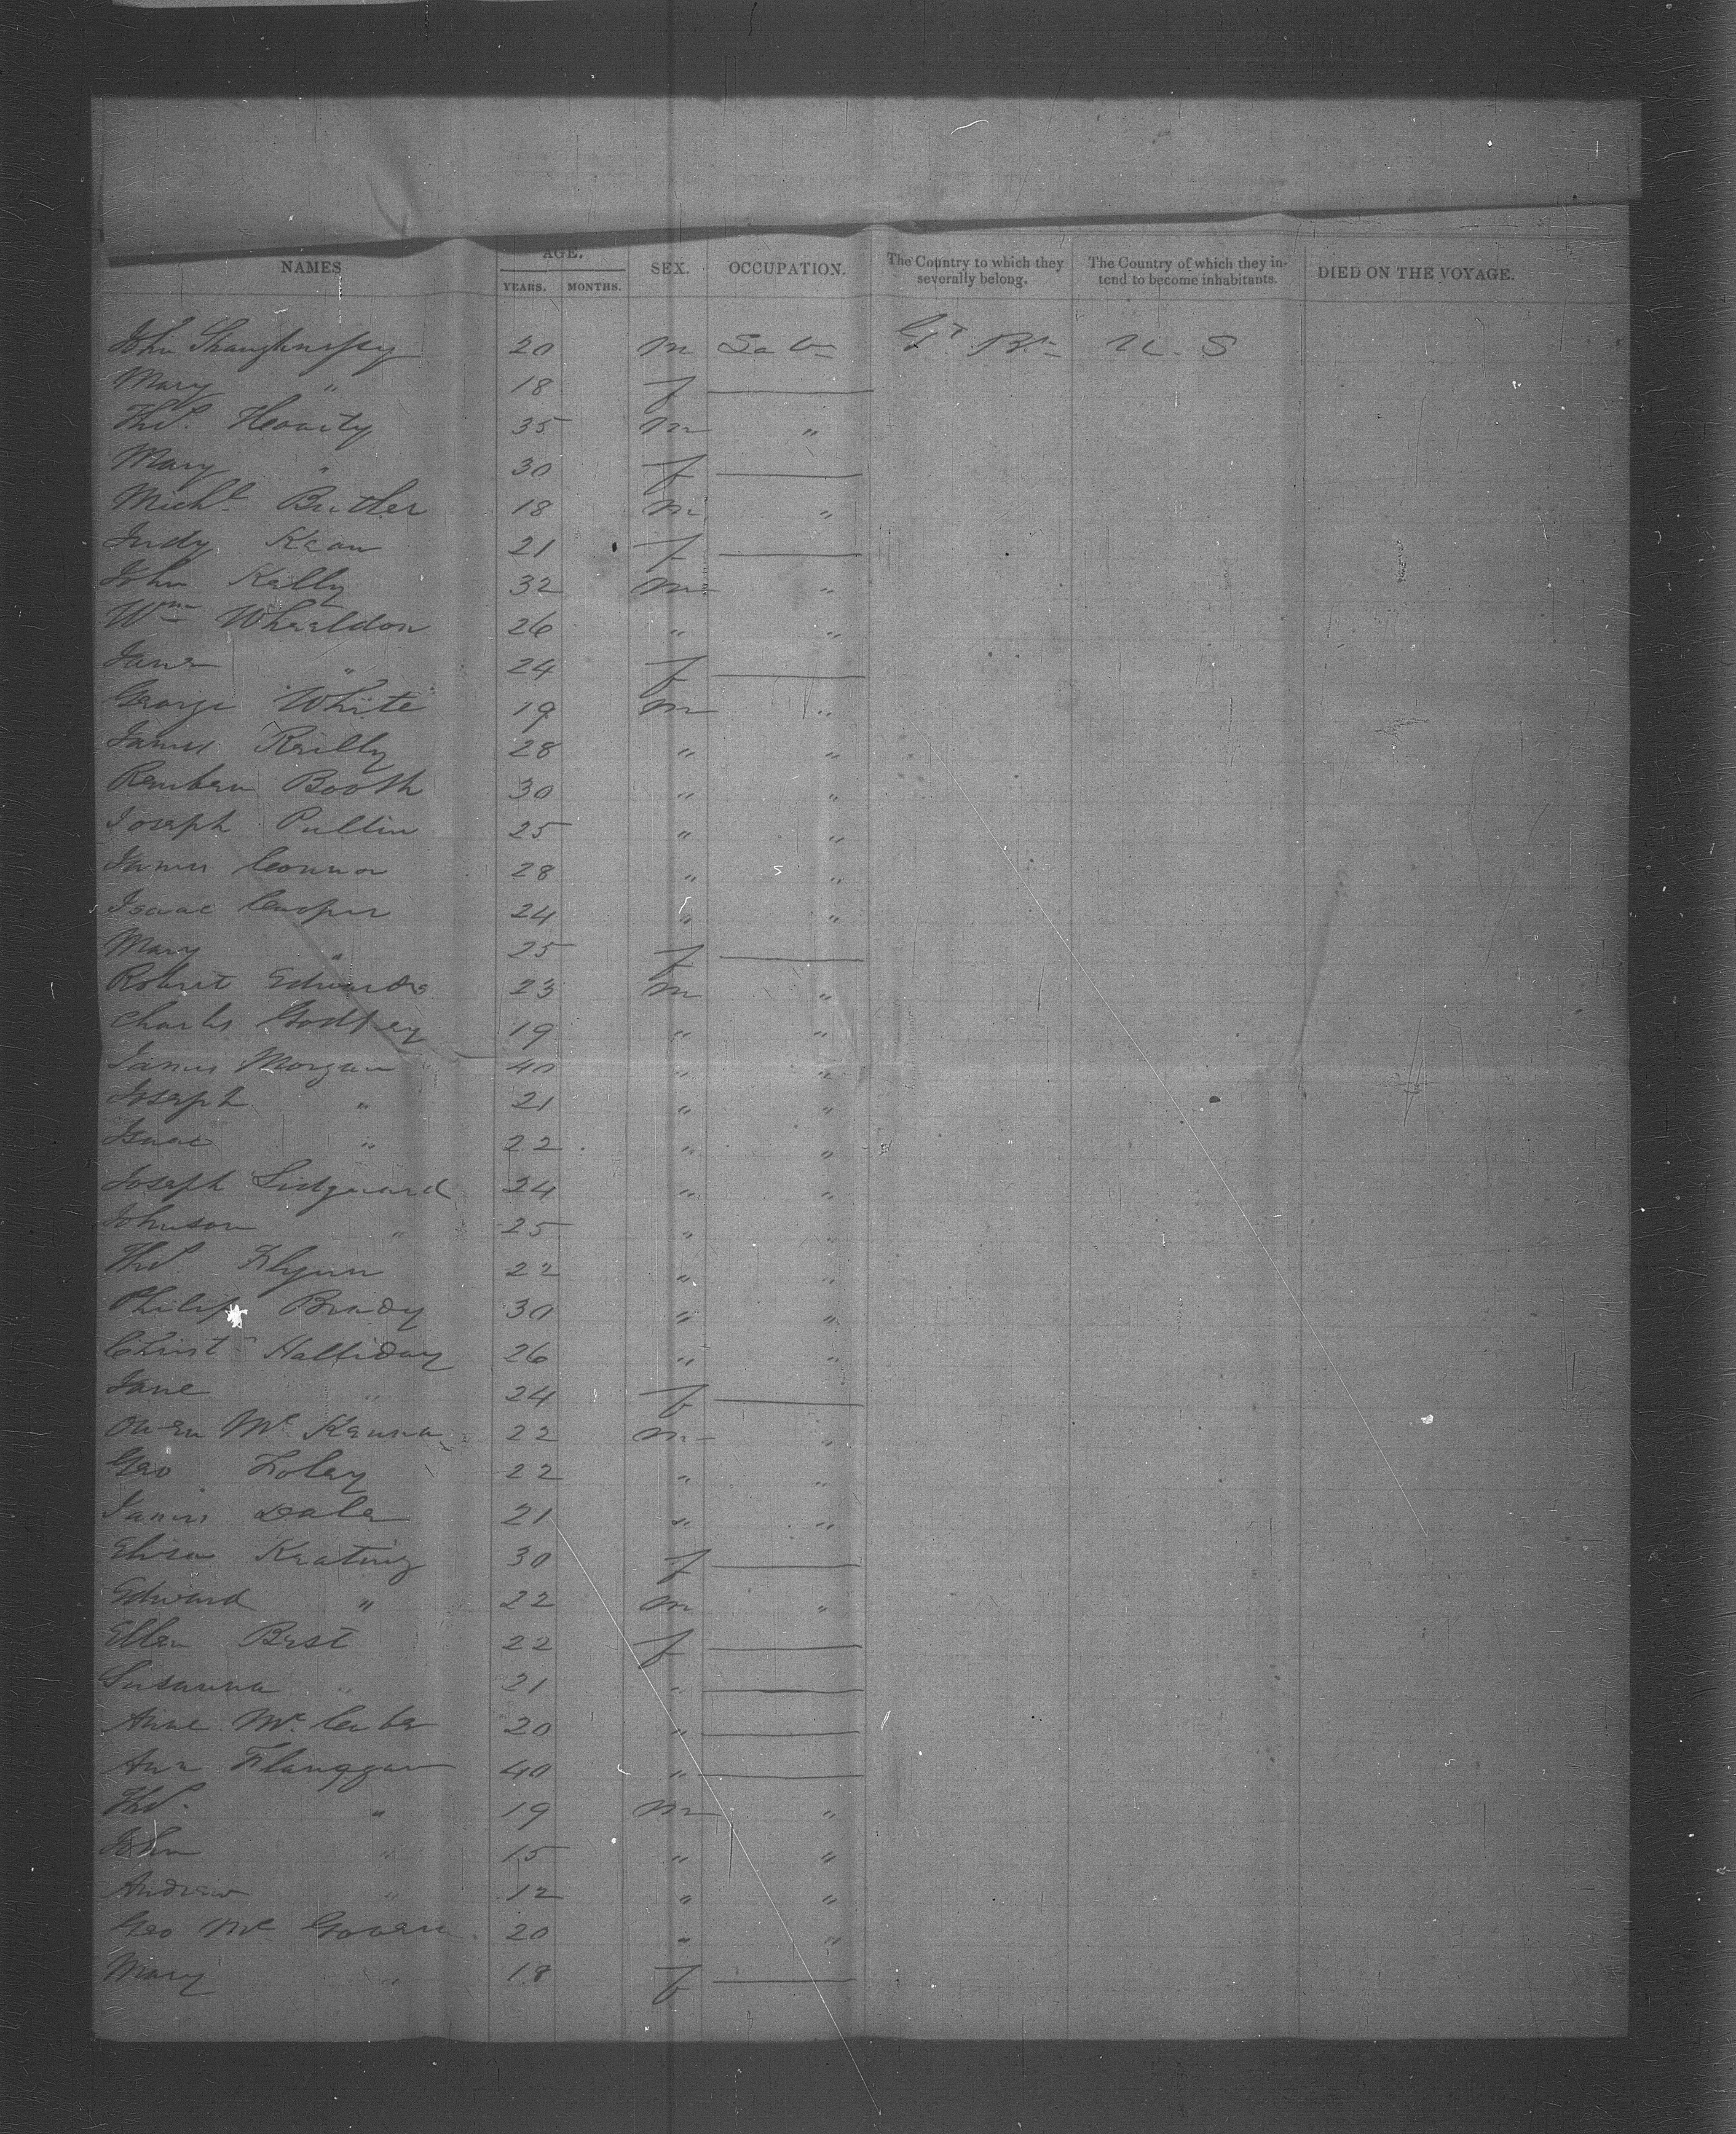 NAMES AGE. YEARS. MONTHS. SEX. OCCUPATION. The Country to which they severally belong. The Country of which they intend to become inhabitants. DIED ON THE VOYAGE.
John Shaughnessy 20 m Labr Gt Brn U. S
Mary " 18 f
Thos. 35 m "
Mary " 30 f
Michl Butler 18 m "
Judy Kean 21 f
John Kelly 32 m "
Wm Wheeldon 26 " "
Jane " 24 f
George White 19 m "
James Reilly 28 " "
Reuben Booth 30 " "
Joseph Pullin 25 " "
James Connor 28 " "
Isaac Cooper 24 " "
Mary " 25 f
Robert Edwards 23 m "
Charles Godfrey 19 " "
James Morgan 40 " "
Joseph " 21 " "
Isaac " 22 " "
Joseph Lidguard 24 " "
Johnson " 25 " "
Thos. Flynn 22 " "
Philip Brady 30 " "
Christ Halliday 26 " "
Jane " 24 f
Owen McKenna 22 m "
Geo Foley 22 " "
James Dale 21 " "
Eliza Keating 30 f
Edward " 22 m "
Ellen Best 22 f
Susanna " 21 "
Anne McCabe 20 "
Ann Flanaggan 40 "
Thos. " 19 m "
John " 15 " "
Andrew " 12 " "
Geo McGovern 20 " "
Mary " 18 f